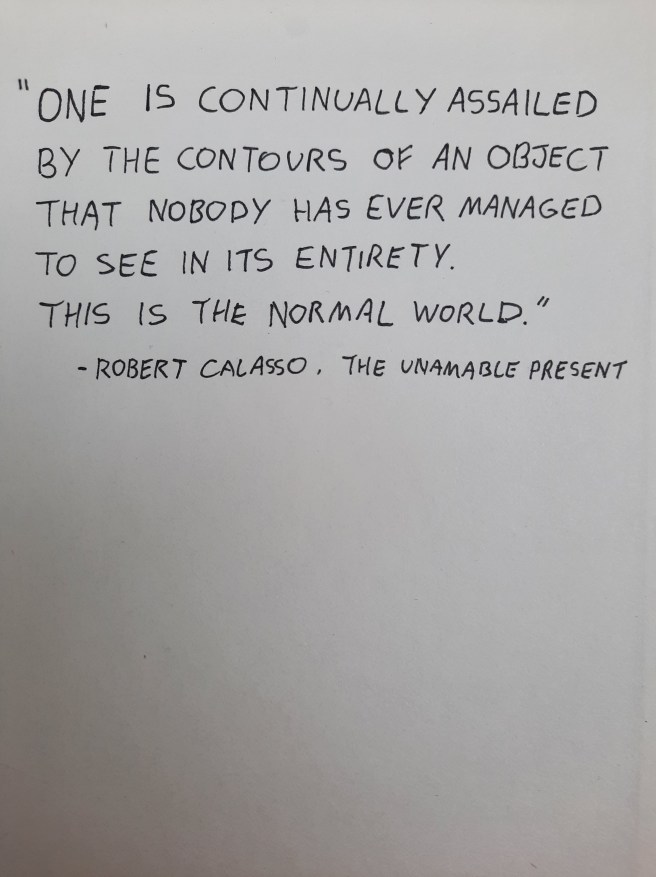 "ONE IS CONTINUALLY ASSAILED
BY THE CONTOURS OF AN OBJECT
THAT NOBODY HAS EVER MANAGED
TO SEE IN ITS ENTIRETY.
THIS IS THE NORMAL WORLD."
- ROBERT CALASSO, THE UNAMABLE PRESENT